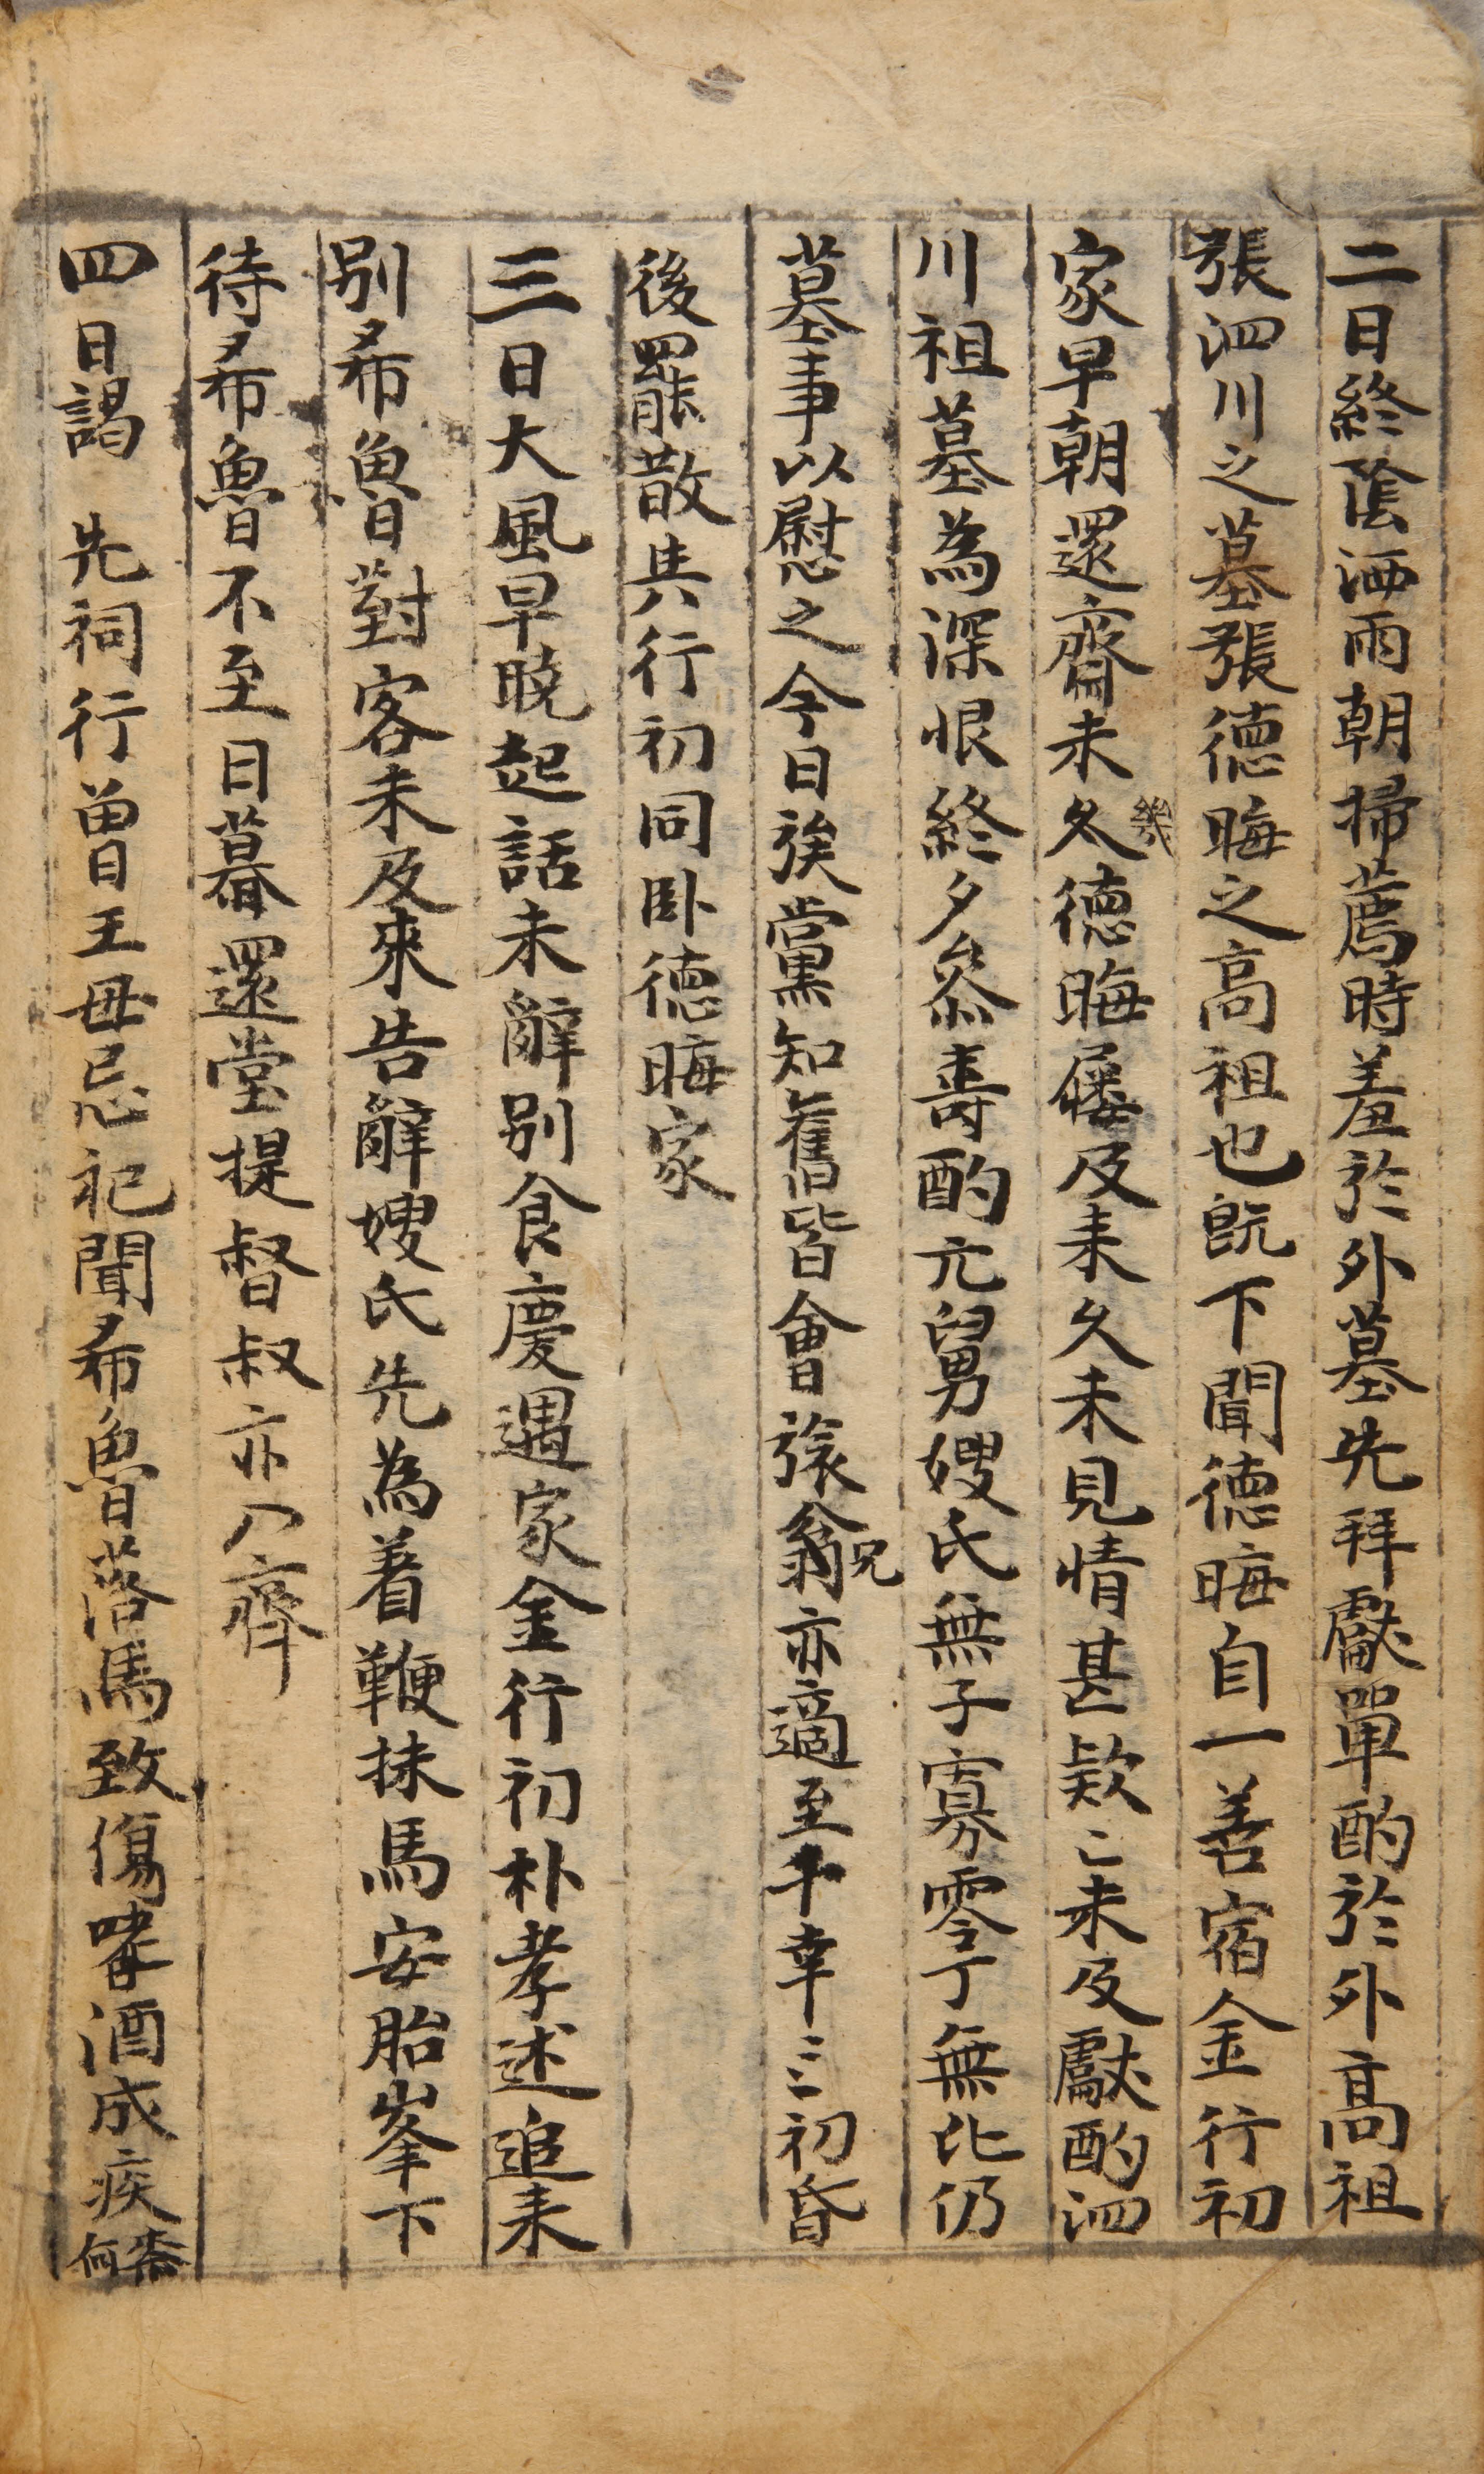 二日終陰洒雨朝掃薦時羞於外墓先拜獻單酌於外高祖
張泗川之墓張德晦之高祖也旣下聞德晦自一善宿金行初
家早朝還齋未幾久德晦屐及来久未見情甚欵〻未及獻酌泗
川祖墓爲深恨終夕叅壽酌亢舅嫂氏無子寡零丁無比仍
墓事以慰之今日族黨知舊皆會張翁兄亦適至幸〻初昏
後罷散共行初同卧德晦家
三日大風早曉起話未辭別食慶遇家金行初朴孝述追来
別希魯對客未及來告辭嫂氏先為着鞭抹馬安胎峯下
待希魯不至日暮還堂提督叔亦入齊
四日謁 先祠行曾王母忌祀聞希魯落馬致傷嗜酒成疾奈何